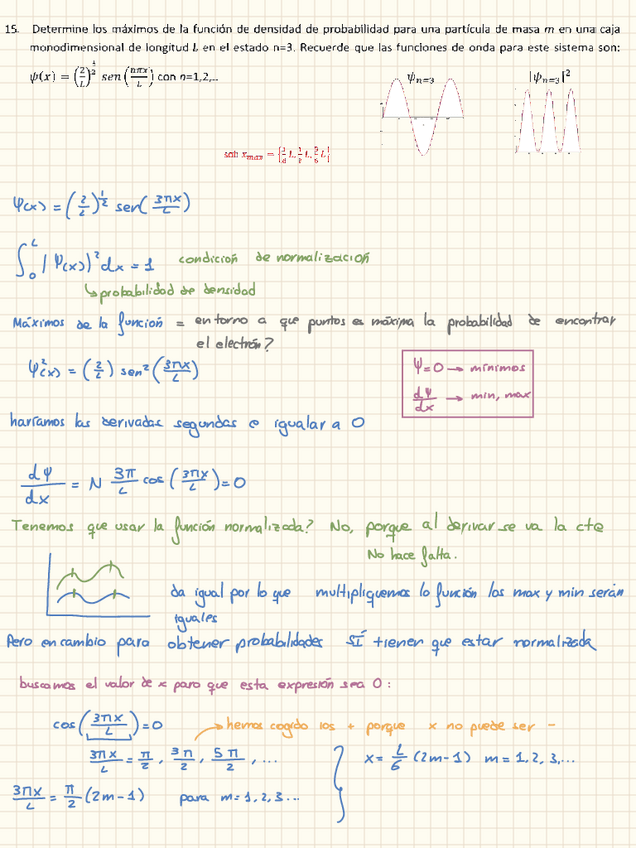 15. Determine los máximos de la función de densidad de probabilidad para una partícula de masa m en una caja
monodimensional de longitud L en el estado n=3. Recuerde que las funciones de onda para este sistema son:
ψ(x) = (2/L)^½ sen(nπx/L) con n=1,2,..
ψn=3
|ψn=3|²
sol: xmax =
Ψ(x) = (2/L)^½ sen(3πx/L)
∫₀ᴸ |Ψ(x)|² dx = 1 condición de normalización
↳ probabilidad de densidad
Máximos de la función = en torno a que puntos es máxima la probabilidad de encontrar
el electrón?
Ψ²(x) = (2/L) sen² (3πx/L)
Ψ=0 → mínimos
dΨ/dx → min, max
haríamos las derivadas segundas e igualar a 0
dΨ/dx = N 3π/L cos (3πx/L) = 0
Tenemos que usar la función normalizada? No, porque al derivar se va la cte
No hace falta.
da igual por lo que multipliquemos la función los max y min serán
iguales
Pero en cambio para obtener probabilidades SÍ tienen que estar normalizada
buscamos el valor de x para que esta expresión sea 0:
cos(3πx/L) = 0 → hemos cogido los + porque x no puede ser -
3πx/L = π/2, 3π/2, 5π/2, ...
x = L/6 (2m-1) m = 1, 2, 3,...
3πx/L = π/2 (2m-1) para m = 1, 2, 3...